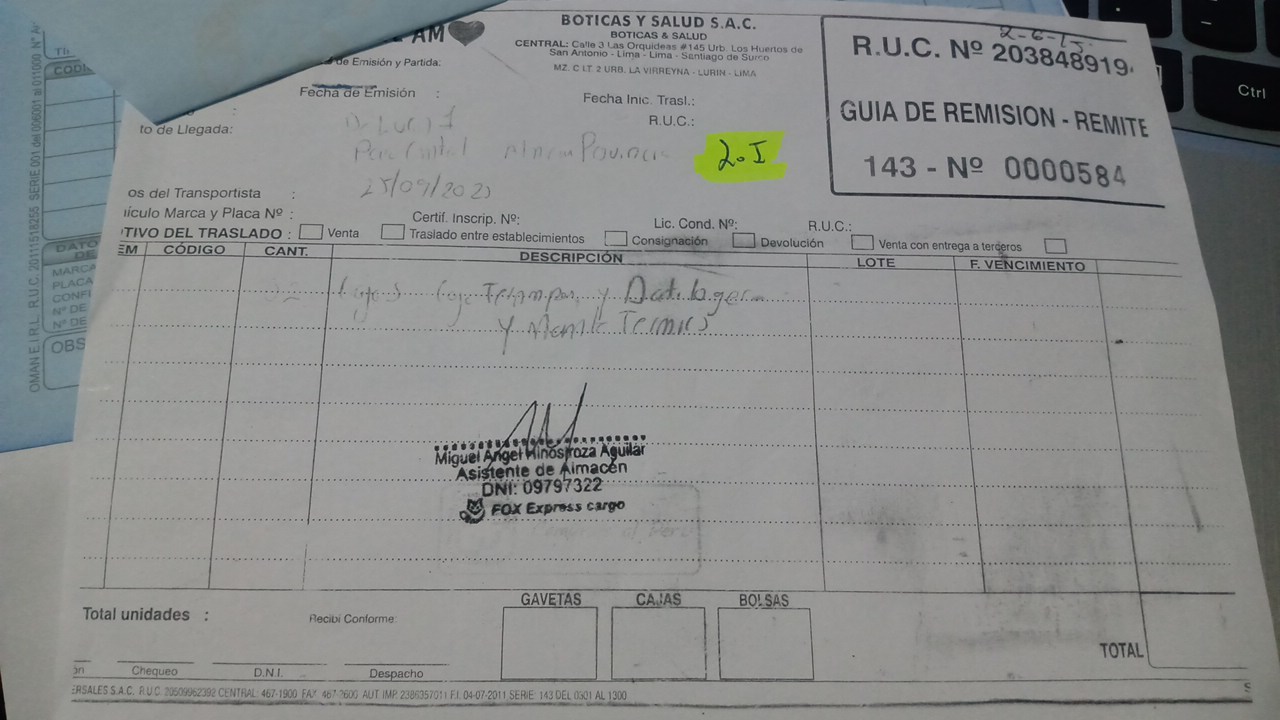 AM
BOTICAS Y SALUD S.A.C.
BOTICAS & SALUD
CENTRAL: Calle 3 Las Orquideas #145 Urb. Los Huertos de
San Antonio - Lima - Lima - Santiago de Surco
MZ. C LT. 2 URB. LA VIRREYNA - LURIN - LIMA
2-6-15
R.U.C. Nº 203848919
GUIA DE REMISION - REMITE
143 - Nº 0000584
de Emisión y Partida:
Fecha de Emisión :
Fecha Inic. Trasl.:
to de Llegada:
R.U.C.:
Provincia
2.I
os del Transportista :
25/09/2023
ículo Marca y Placa Nº :
Certif. Inscrip. Nº:
Lic. Cond. Nº:
R.U.C.:
TIVO DEL TRASLADO : Venta Traslado entre establecimientos Consignación Devolución Venta con entrega a terceros
EM CÓDIGO CANT. DESCRIPCIÓN LOTE F. VENCIMIENTO
Cajas y Datalogger
y Termicos
Miguel Angel Hinostroza Aguilar
Asistente de Almacén
DNI: 09797322
FOX Express cargo
GAVETAS CAJAS BOLSAS
Total unidades :
Recibi Conforme:
TOTAL
Chequeo D.N.I. Despacho
ERSALES S.A.C. R.U.C. 20509962392 CENTRAL: 467-1900 FAX: 467-2600 AUT.IMP. 2386357011 F.I. 04-07-2011 SERIE: 143 DEL 0301 AL 1300
OMAN E.I.R.L. R.U.C. 20111518255 SERIE 001 del 006001 al 011000
CODI
DATO
DE
MARCA
PLACA
CONF
Nº DE
Nº DE
OBS
Ctrl